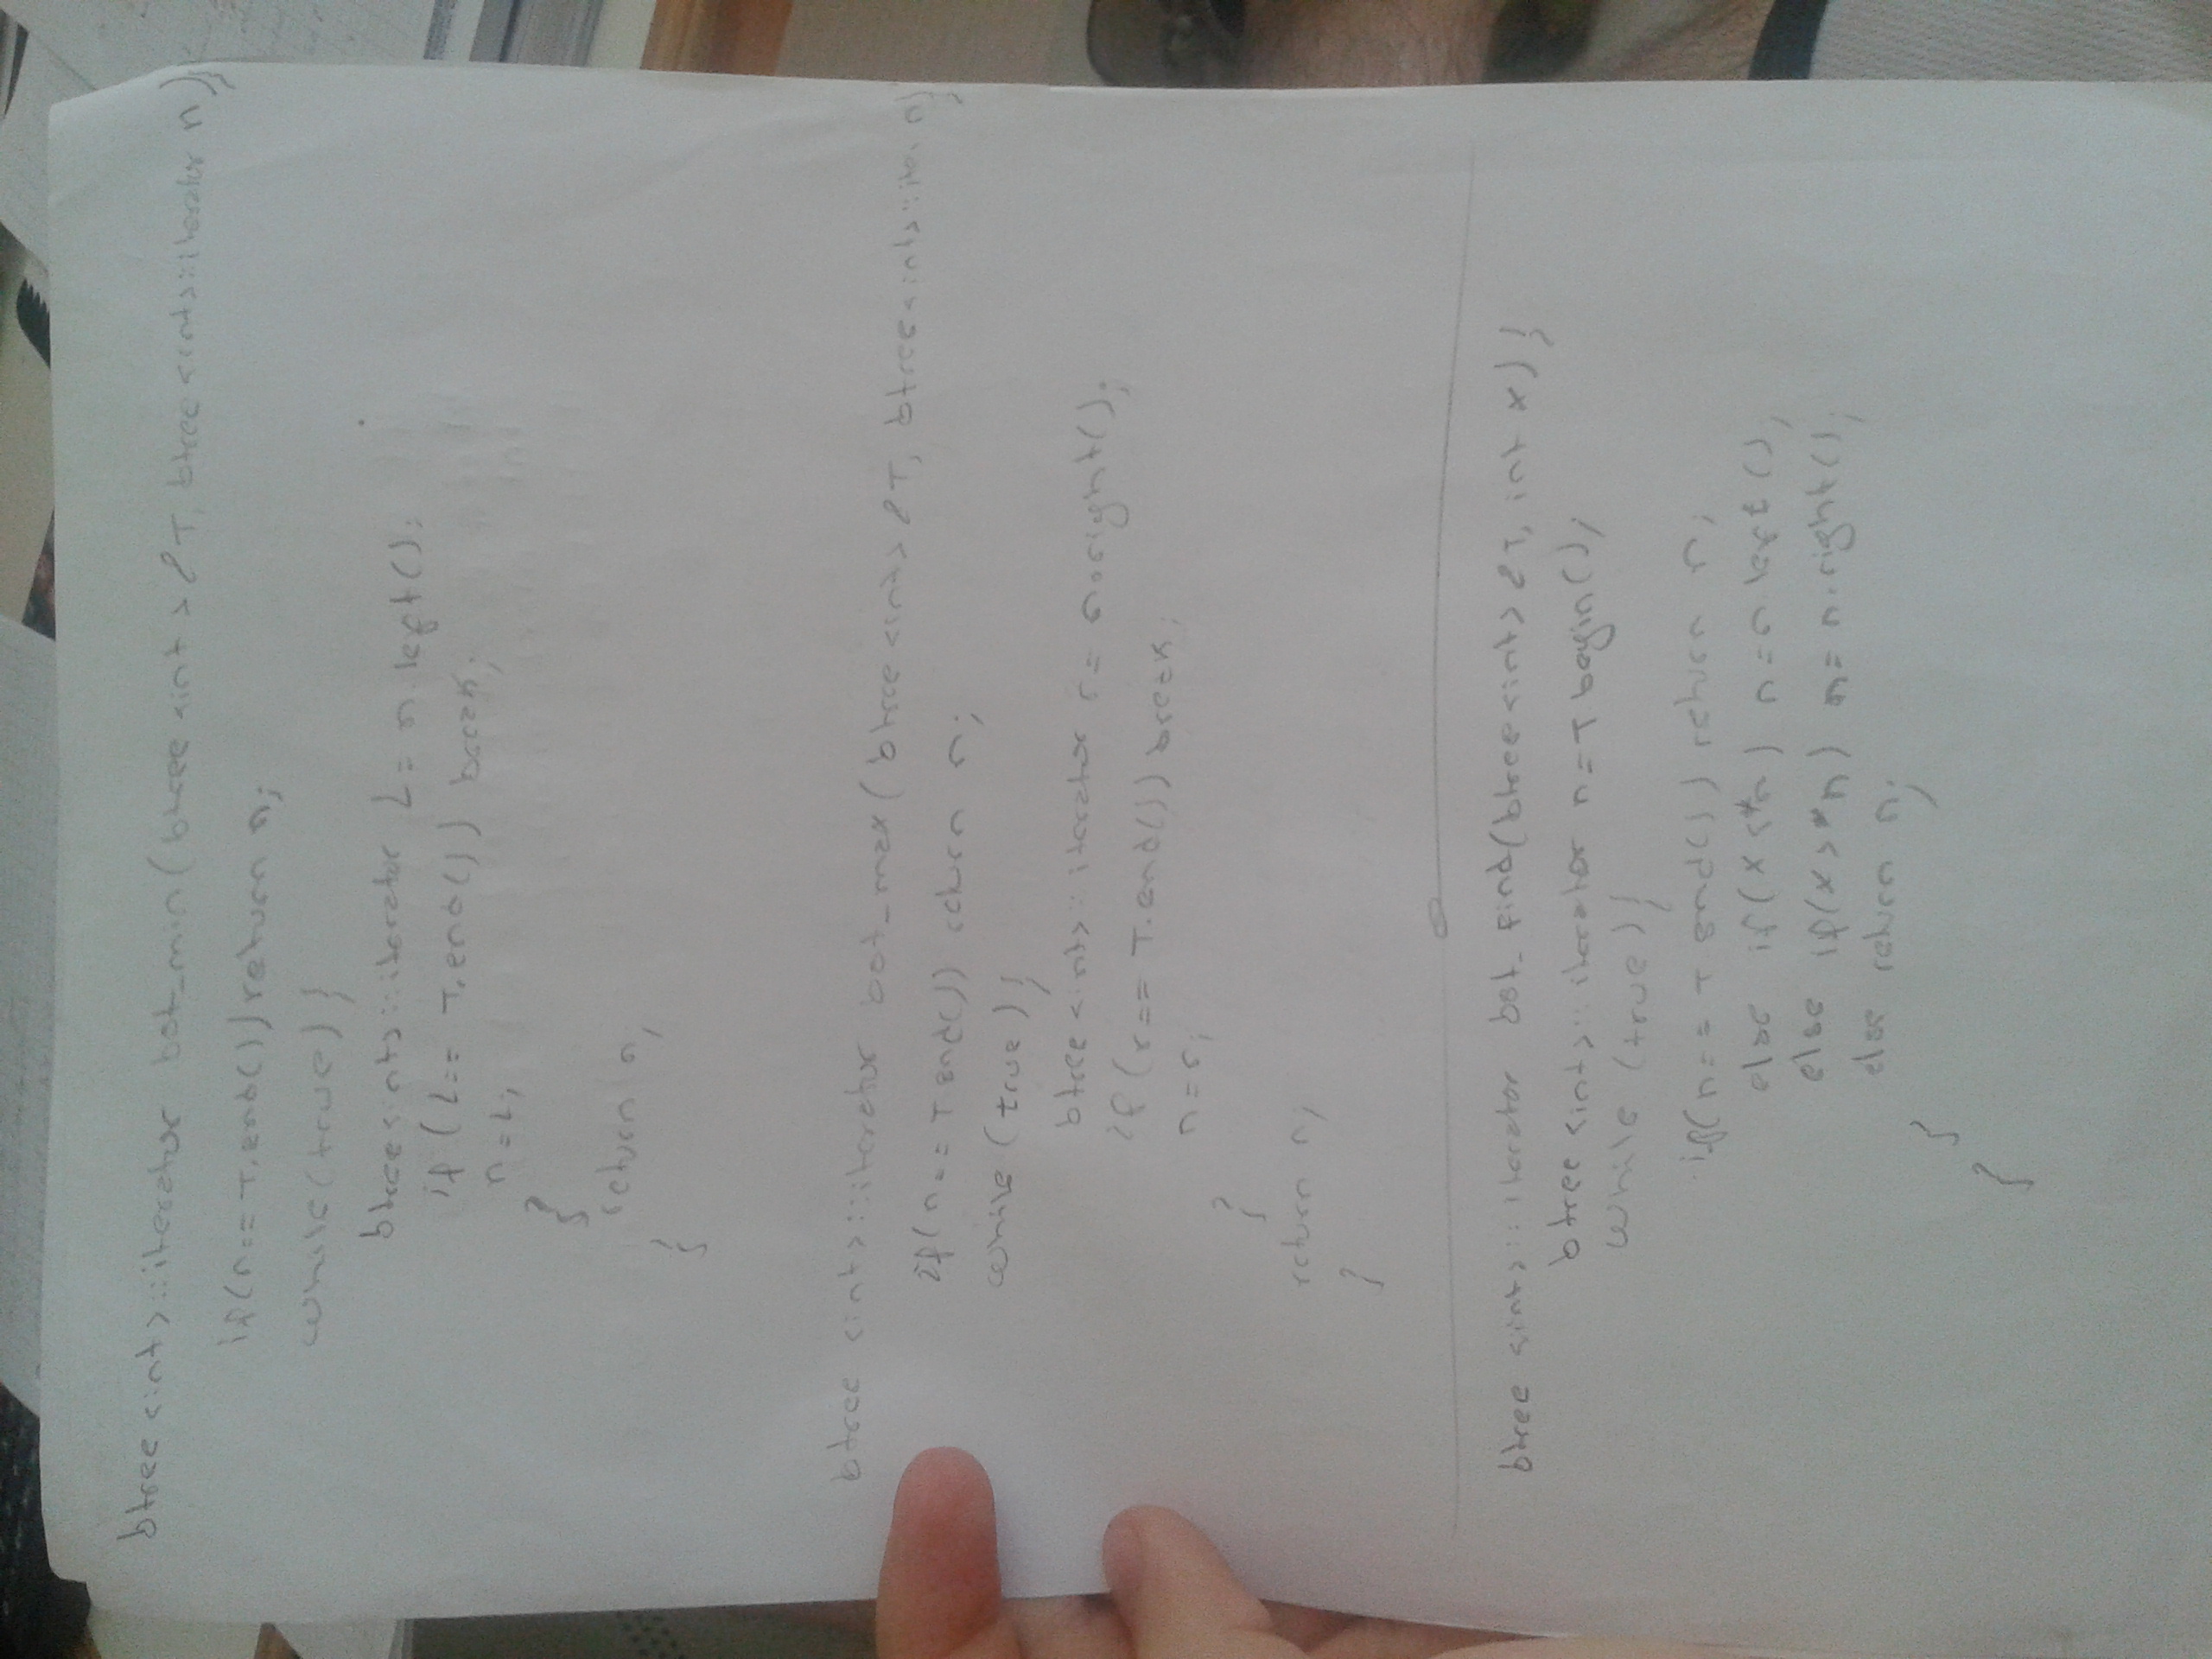 btree<int>::iterator bst_min(btree<int>&T, btree<int>::iterator n){
if(n==T.end())return n;
while(true){
btree<int>::iterator L=n.left();
if(L==T.end()) break;
n=L;
}
return n;
}
btree<int>::iterator bst_max(btree<int>&T, btree<int>::iter n){
if(n==T.end()) return n;
while(true){
btree<int>::iterator r=n.right();
if(r==T.end())break;
n=r;
}
return n;
}
btree<int>::iterator bst_find(btree<int>&T, int x){
btree<int>::iterator n=T.begin();
while(true){
if(n==T.end()) return n;
else if(x<*n) n=n.left();
else if(x>*n) n=n.right();
else return n;
}
}